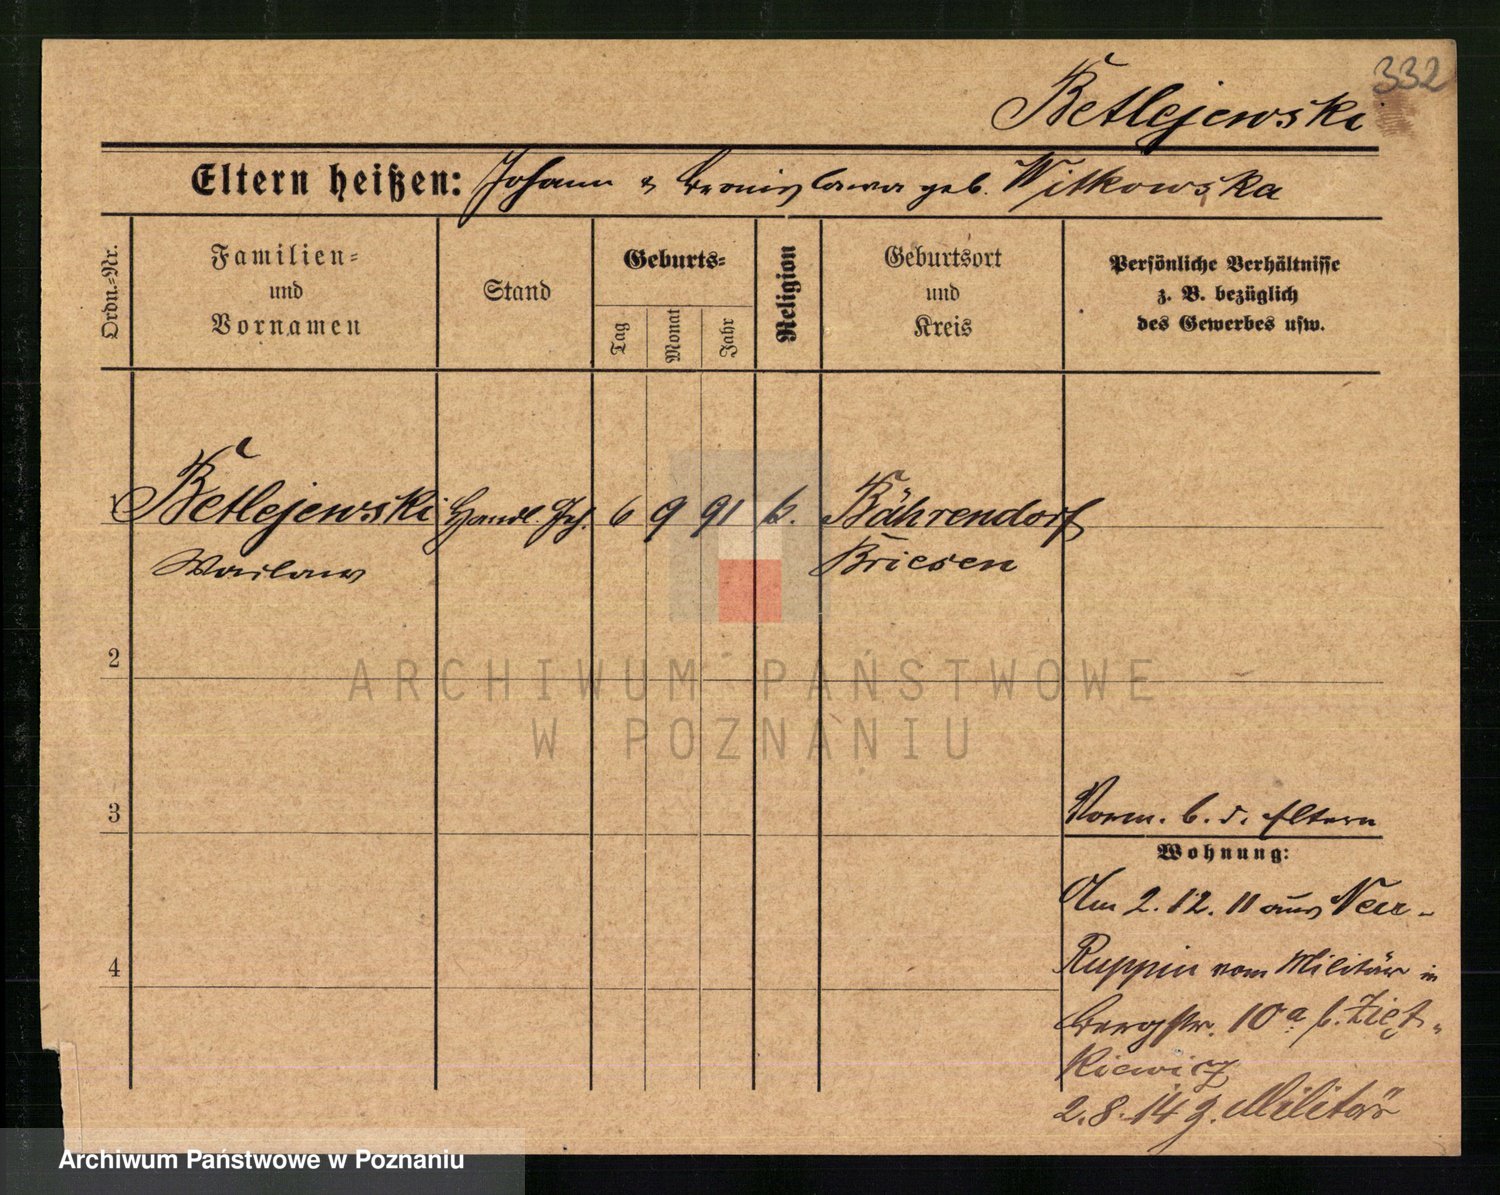 332
Betlejewski
Eltern heißen: Johann & Bronislawa geb. Witkowska
Ordn.-Nr.
Familien-
und
Vornamen
Stand
Geburts-
Tag
Monat
Jahr
Religion
Geburtsort
und
Kreis
Persönliche Verhältnisse
z. B. bezüglich
des Gewerbes usw.
1 Betlejewski Handl. Geh. 6 9 91 k. Bährendorf
Waclaw Briesen
2
3
4
Vorm. b. d. Eltern
Wohnung:
Am 2.12.11 aus Neu-
Ruppin vom Militär in
Bergstr. 10a b. Zięt-
kiewicz
2.8.14 z. Militär
ARCHIWUM PAŃSTWOWE
W POZNANIU
Archiwum Państwowe w Poznaniu